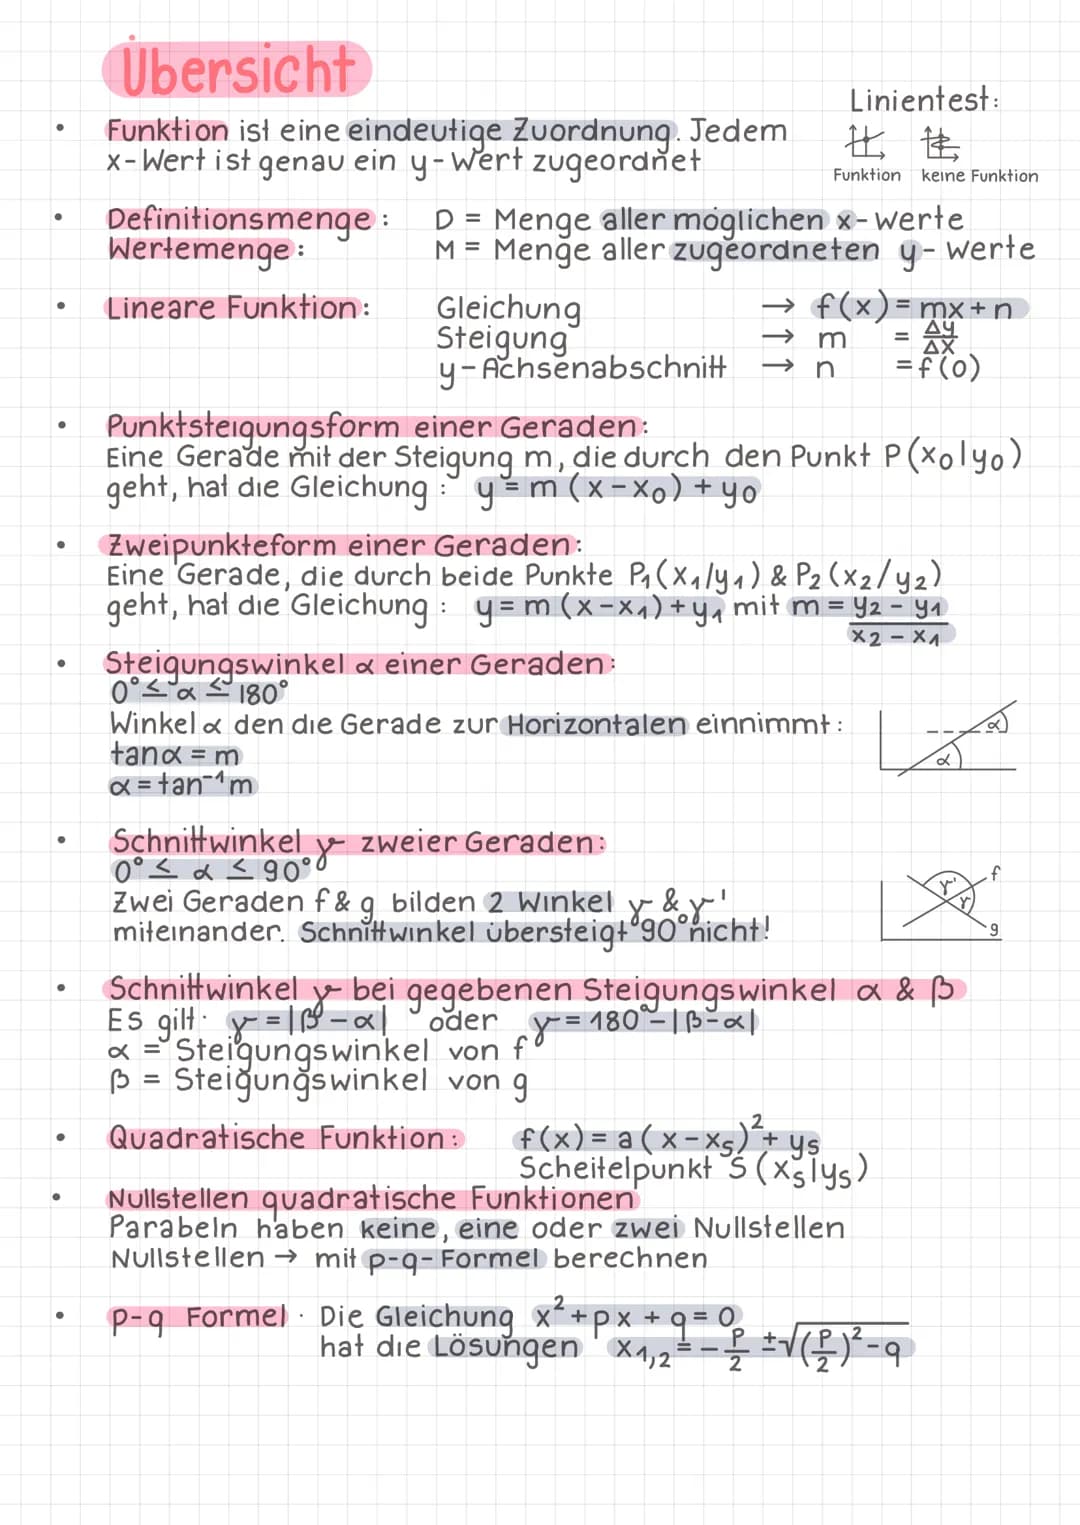 Übersicht
Linientest:
Funktion keine Funktion
• Funktion ist eine eindeutige Zuordnung. Jedem
x-Wert ist genau ein y-Wert zugeordnet
• Definitionsmenge: D = Menge aller möglichen x-werte
Wertemenge: M = Menge aller zugeordneten y-werte
• Lineare Funktion: Gleichung → f(x) = mx+n
Steigung → m = Δy/Δx
y-Achsenabschnitt → n = f(0)
• Punktsteigungsform einer Geraden:
Eine Gerade mit der Steigung m, die durch den Punkt P(x₀|y₀)
geht, hat die Gleichung: y = m(x-x₀)+y₀
• Zweipunkteform einer Geraden:
Eine Gerade, die durch beide Punkte P₁(x₁/y₁) & P₂(x₂/y₂)
geht, hat die Gleichung: y = m(x-x₁)+y₁ mit m = y₂ - y₁
x₂ - x₁
• Steigungswinkel α einer Geraden:
0° ≤ α ≤ 180°
Winkel α den die Gerade zur Horizontalen einnimmt:
tanα = m
α = tan⁻¹m
α
α
• Schnittwinkel γ zweier Geraden:
0° ≤ α ≤ 90°
Zwei Geraden f & g bilden 2 Winkel γ & γ'
miteinander. Schnittwinkel übersteigt 90° nicht!
f
γ'
γ
g
• Schnittwinkel γ bei gegebenen Steigungswinkel α & β
Es gilt: γ = |β-α| oder γ = 180° - |β-α|
α = Steigungswinkel von f
β = Steigungswinkel von g
• Quadratische Funktion: f(x) = a(x-xₛ)²+ yₛ
Scheitelpunkt S(xₛ|yₛ)
• Nullstellen quadratische Funktionen
Parabeln haben keine, eine oder zwei Nullstellen
Nullstellen → mit p-q-Formel berechnen
• p-q Formel: Die Gleichung x²+px+q = 0
hat die Lösungen x₁,₂ = -p/2 ±√(p/2)²-q